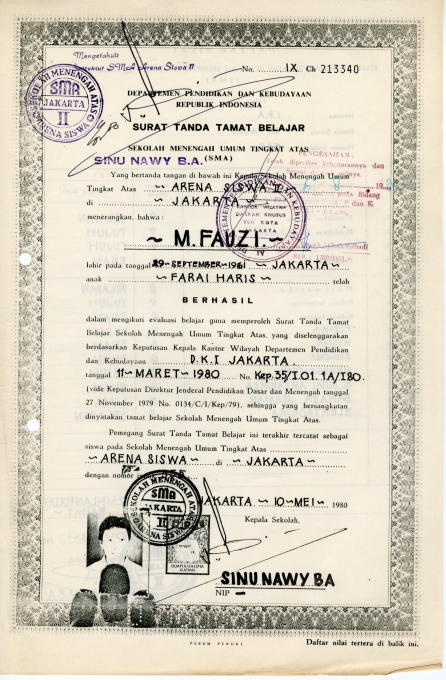 Mengetahui
Instruktur SMA Arena Siswa II
No. IX Ch 213340
DEPARTEMEN PENDIDIKAN DAN KEBUDAYAAN
REPUBLIK INDONESIA
SURAT TANDA TAMAT BELAJAR
SEKOLAH MENENGAH UMUM TINGKAT ATAS
(SMA)
SEKOLAH MENENGAH ATAS
SMA
JAKARTA
II
ARENA SISWA
PENGESAHAN:
SINU NAWY B.A.
Yang bertanda tangan di bawah ini Kepala Sekolah Menengah Umum
Tingkat Atas ~ ARENA SISWA II
di ~ JAKARTA ~
menerangkan, bahwa :
KANTOR WILAYAH
DAERAH KHUSUS
IBU KOTA
JAKARTA
~ M. FAUZI. ~
lahir pada tanggal 29-SEPTEMBER-1961 ~ JAKARTA ~
anak ~ FARAI HARIS ~ telah
BERHASIL
dalam mengikuti evaluasi belajar guna memperoleh Surat Tanda Tamat
Belajar Sekolah Menengah Umum Tingkat Atas, yang diselenggarakan
berdasarkan Keputusan Kepala Kantor Wilayah Departemen Pendidikan
dan Kebudayaan D.K.I JAKARTA
tanggal 11-MARET-1980 No. Kep.35/I.01.1A/I80.
(vide Keputusan Direktur Jenderal Pendidikan Dasar dan Menengah tanggal
27 November 1979 No. 0134/C/I/Kep/79), sehingga yang bersangkutan
dinyatakan tamat belajar Sekolah Menengah Umum Tingkat Atas.
Pemegang Surat Tanda Tamat Belajar ini terakhir tercatat sebagai
siswa pada Sekolah Menengah Umum Tingkat Atas
~ ARENA SISWA ~ di ~ JAKARTA ~
dengan nomor
SEKOLAH MENENGAH ATAS
SMA
ARENA SISWA
II
JAKARTA ~ 10-MEI ~ 1980
Kepala Sekolah.
SINU NAWY. BA
NIP —
PERUM PERURI
Daftar nilai tertera di balik ini.